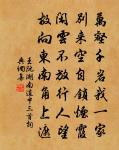 萬壑千岩我一家
別來空自鎖煙霞
閑雲不放行人望
故向東南角上遮
王阮湖南道中三首詞
典詞集